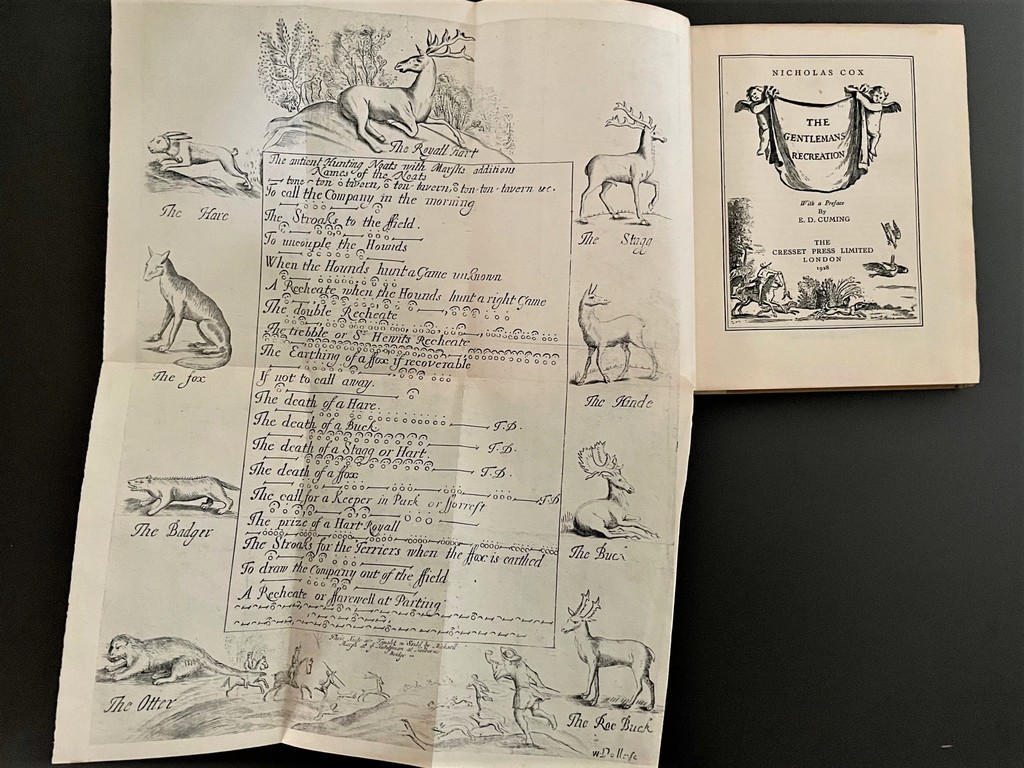 The Royall Hart
The antient Hunting Noats with Marshs additions
Names of the Noats
tone ton tavern, ton-tavern, ton-ton-tavern &c.
To call the Company in the morning
The Stroaks to the ffield.
To uncouple the Hounds
When the Hounds hunt a Game unknown
A Recheate when the Hounds hunt a right Game
The double Recheate
The trebble or Sr. Hewits Recheate
The Earthing of a ffox if recoverable
If not to call away.
The death of a Hare
The death of a Buck T.D.
The death of a Stagg or Hart. T.D.
The death of a ffox T.D.
The call for a Keeper in Park or fforrest T.D
The prize of a Hart Royall
The Stroaks for the Terriers when the ffox is earthed
To draw the Company out of the ffield
A Recheate or ffarewell at Parting
The Hare
The fox
The Badger
The Otter
The Stagg
The Hinde
The Buck
The Roe Buck
NICHOLAS COX
THE
GENTLEMANS
RECREATION
With a Preface
By
E. D. CUMING
THE
CRESSET PRESS LIMITED
LONDON
1928